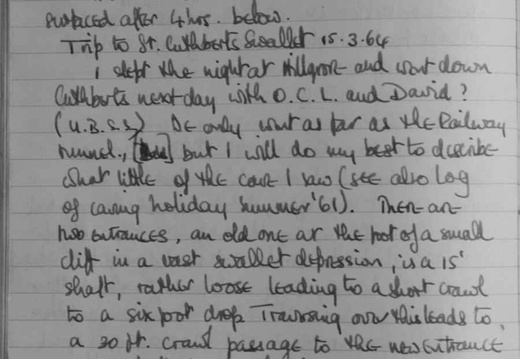 surfaced after 4 hrs. below.
Trip to St. Cuthberts Swallet 15.3.64
I slept the night at Hillgrove and went down
Cuthberts next day with O.C.L. and David ?
(U.B.S.S) We only went as far as the Railway
Tunnel, but I will do my best to describe
what little of the cave I saw (see also Log
of caving holiday summer '61). There are
two entrances, an old one at the foot of a small
cliff in a vast swallet depression, is a 15'
shaft, rather loose leading to a short crawl
to a six foot drop Traversing over this leads to
a 30 ft. crawl passage to the new entrance